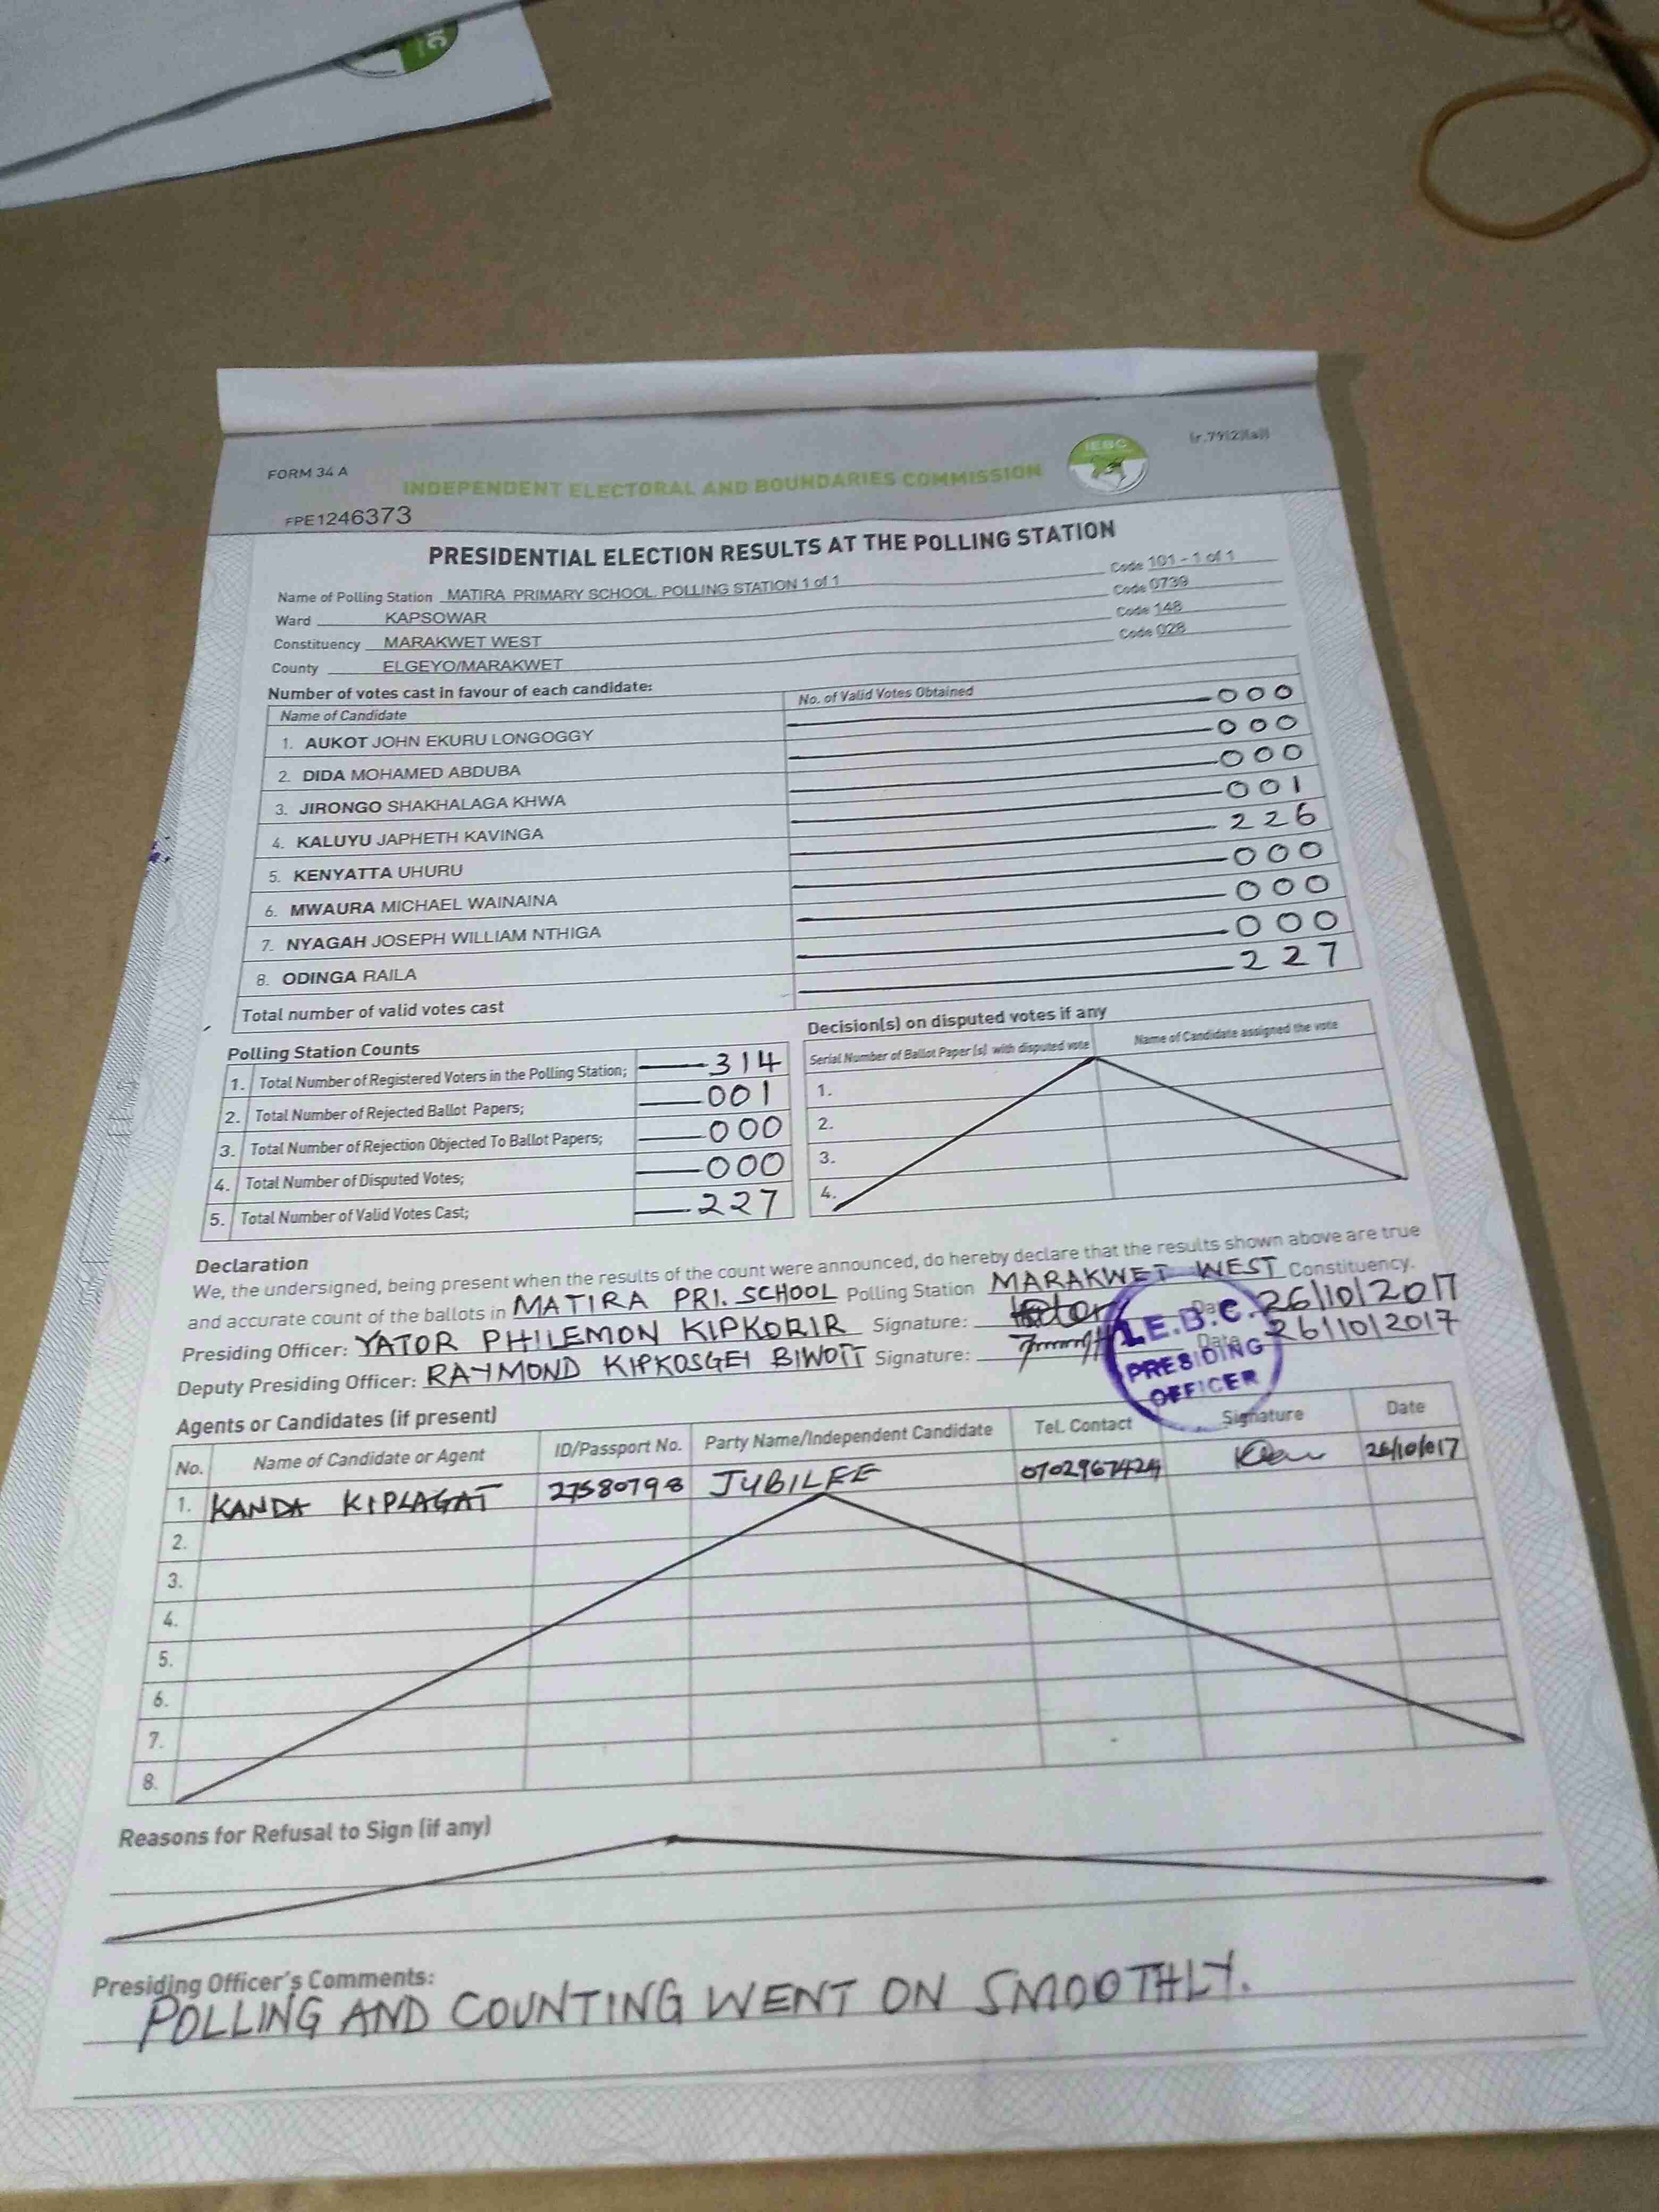 FORM 34 A
INDEPENDENT ELECTORAL AND BOUNDARIES COMMISSION
IEBC
(r.79(2)(a))
FPE1246373
PRESIDENTIAL ELECTION RESULTS AT THE POLLING STATION
Name of Polling Station MATIRA PRIMARY SCHOOL. POLLING STATION 1 of 1 Code 101 - 1 of 1
Ward KAPSOWAR Code 0739
Constituency MARAKWET WEST Code 148
County ELGEYO/MARAKWET Code 028
Number of votes cast in favour of each candidate:
Name of Candidate No. of Valid Votes Obtained
1. AUKOT JOHN EKURU LONGOGGY 000
2. DIDA MOHAMED ABDUBA 000
3. JIRONGO SHAKHALAGA KHWA 000
4. KALUYU JAPHETH KAVINGA 001
5. KENYATTA UHURU 226
6. MWAURA MICHAEL WAINAINA 000
7. NYAGAH JOSEPH WILLIAM NTHIGA 000
8. ODINGA RAILA 000
Total number of valid votes cast 227
Polling Station Counts
1. Total Number of Registered Voters in the Polling Station; 314
2. Total Number of Rejected Ballot Papers; 001
3. Total Number of Rejection Objected To Ballot Papers; 000
4. Total Number of Disputed Votes; 000
5. Total Number of Valid Votes Cast; 227
Decision(s) on disputed votes if any
Serial Number of Ballot Paper (s) with disputed vote Name of Candidate assigned the vote
1.
2.
3.
4.
Declaration
We, the undersigned, being present when the results of the count were announced, do hereby declare that the results shown above are true
and accurate count of the ballots in MATIRA PRI. SCHOOL Polling Station MARAKWET WEST Constituency.
Presiding Officer: YATOR PHILEMON KIPKORIR Signature: Date 26/10/2017
Deputy Presiding Officer: RAYMOND KIPKOSGEI BIWOTT Signature: Date 26/10/2017
I.E.B.C.
PRESIDING
OFFICER
Agents or Candidates (if present)
No. Name of Candidate or Agent ID/Passport No. Party Name/Independent Candidate Tel. Contact Signature Date
1. KANDA KIPLAGAT 27580798 JUBILEE 0702967424 26/10/017
2.
3.
4.
5.
6.
7.
8.
Reasons for Refusal to Sign (if any)
Presiding Officer's Comments:
POLLING AND COUNTING WENT ON SMOOTHLY.